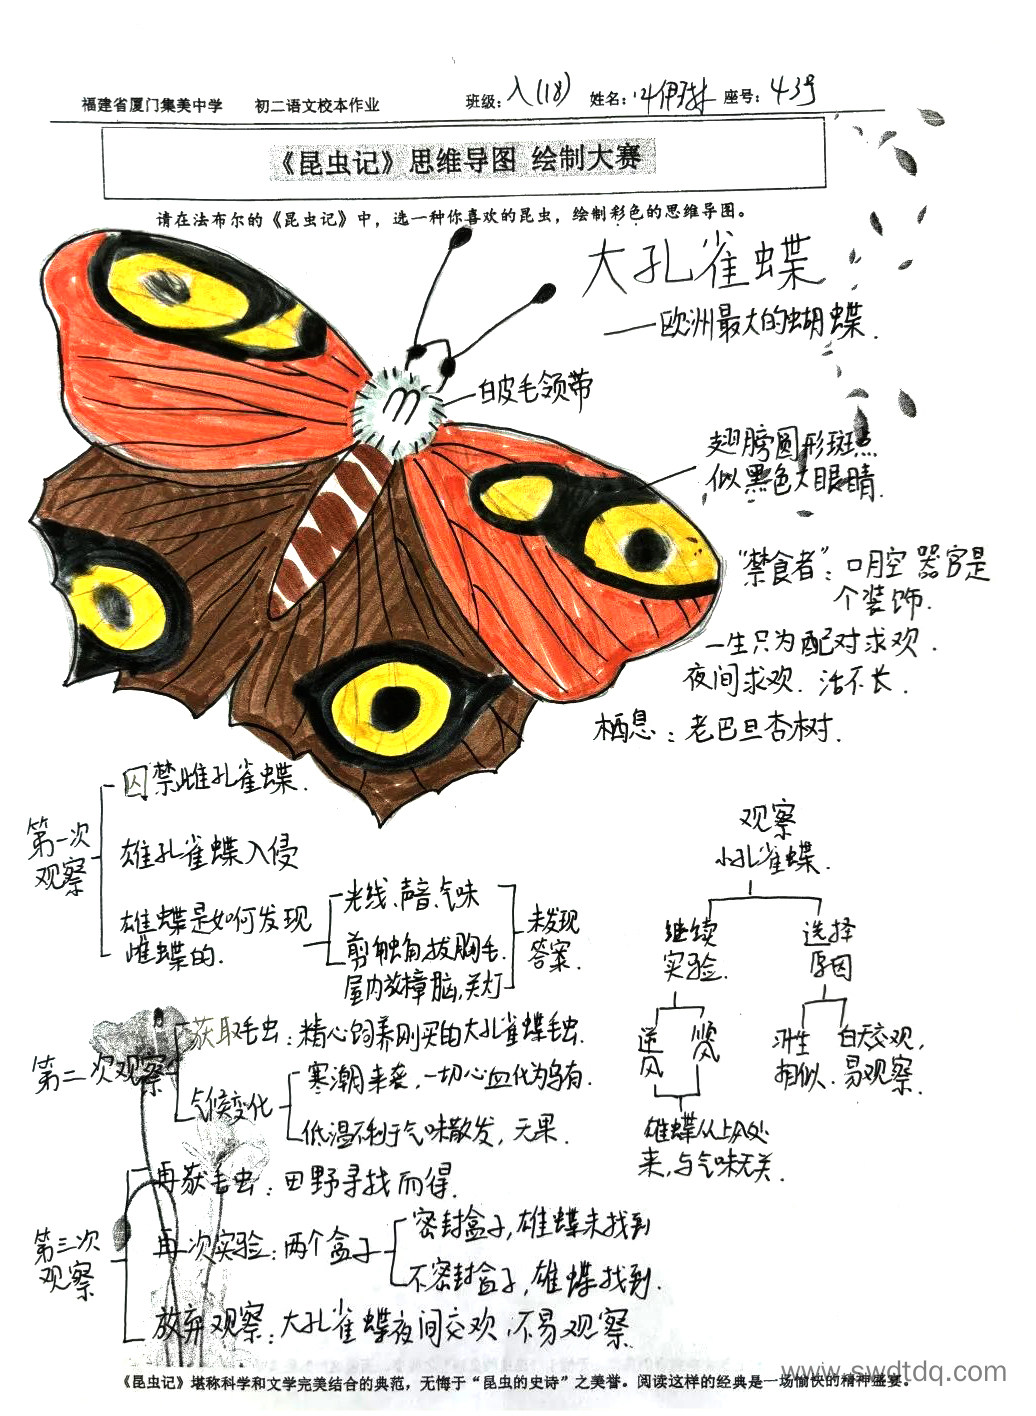 福建省厦门集美中学 初二语文校本作业 班级：八(18) 姓名： 座号：43号
《昆虫记》思维导图 绘制大赛
请在法布尔的《昆虫记》中，选一种你喜欢的昆虫，绘制彩色的思维导图。
大孔雀蝶
——欧洲最大的蝴蝶.
白皮毛领带
翅膀圆形斑点
似黑色大眼睛.
"禁食者"：口腔器官是
个装饰.
一生只为配对求欢.
夜间求欢.活不长.
栖息：老巴旦杏树.
第一次
观察
囚禁雌孔雀蝶.
雄孔雀蝶入侵
雄蝶是如何发现
雌蝶的.
光线、声音、气味
剪触角,拔胸毛.
屋内放樟脑,关灯
未发现
答案.
第二次观察
获取毛虫：精心饲养刚买的大孔雀蝶毛虫.
气候变化
寒潮来袭,一切心血化为乌有.
低温不利于气味散发,无果.
第三次
观察
再获毛虫：田野寻找而得.
再次实验：两个盒子
密封盒子,雄蝶未找到
不密封盒子,雄蝶找到.
放弃观察：大孔雀蝶夜间交欢,不易观察.
观察
小孔雀蝶.
继续
实验.
逆风
顺风
雄蝶从上风处
来,与气味无关.
选择
原因
习性
相似.
白天交欢,
易观察.
《昆虫记》堪称科学和文学完美结合的典范，无悔于“昆虫的史诗”之美誉。阅读这样的经典是一场愉快的精神盛宴。
www.swdtdq.com